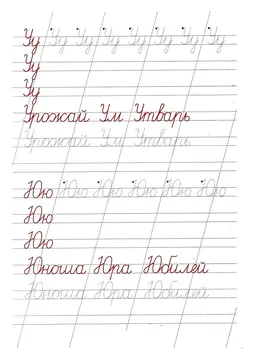 Уу Уу Уу Уу Уу Уу Уу Уу
Уу
Уу
Урожай Ум Утварь
Урожай Ум Утварь
Юю Юю Юю Юю Юю Юю
Юю
Юю
Юноша Юра Юбилей
Юноша Юра Юбилей